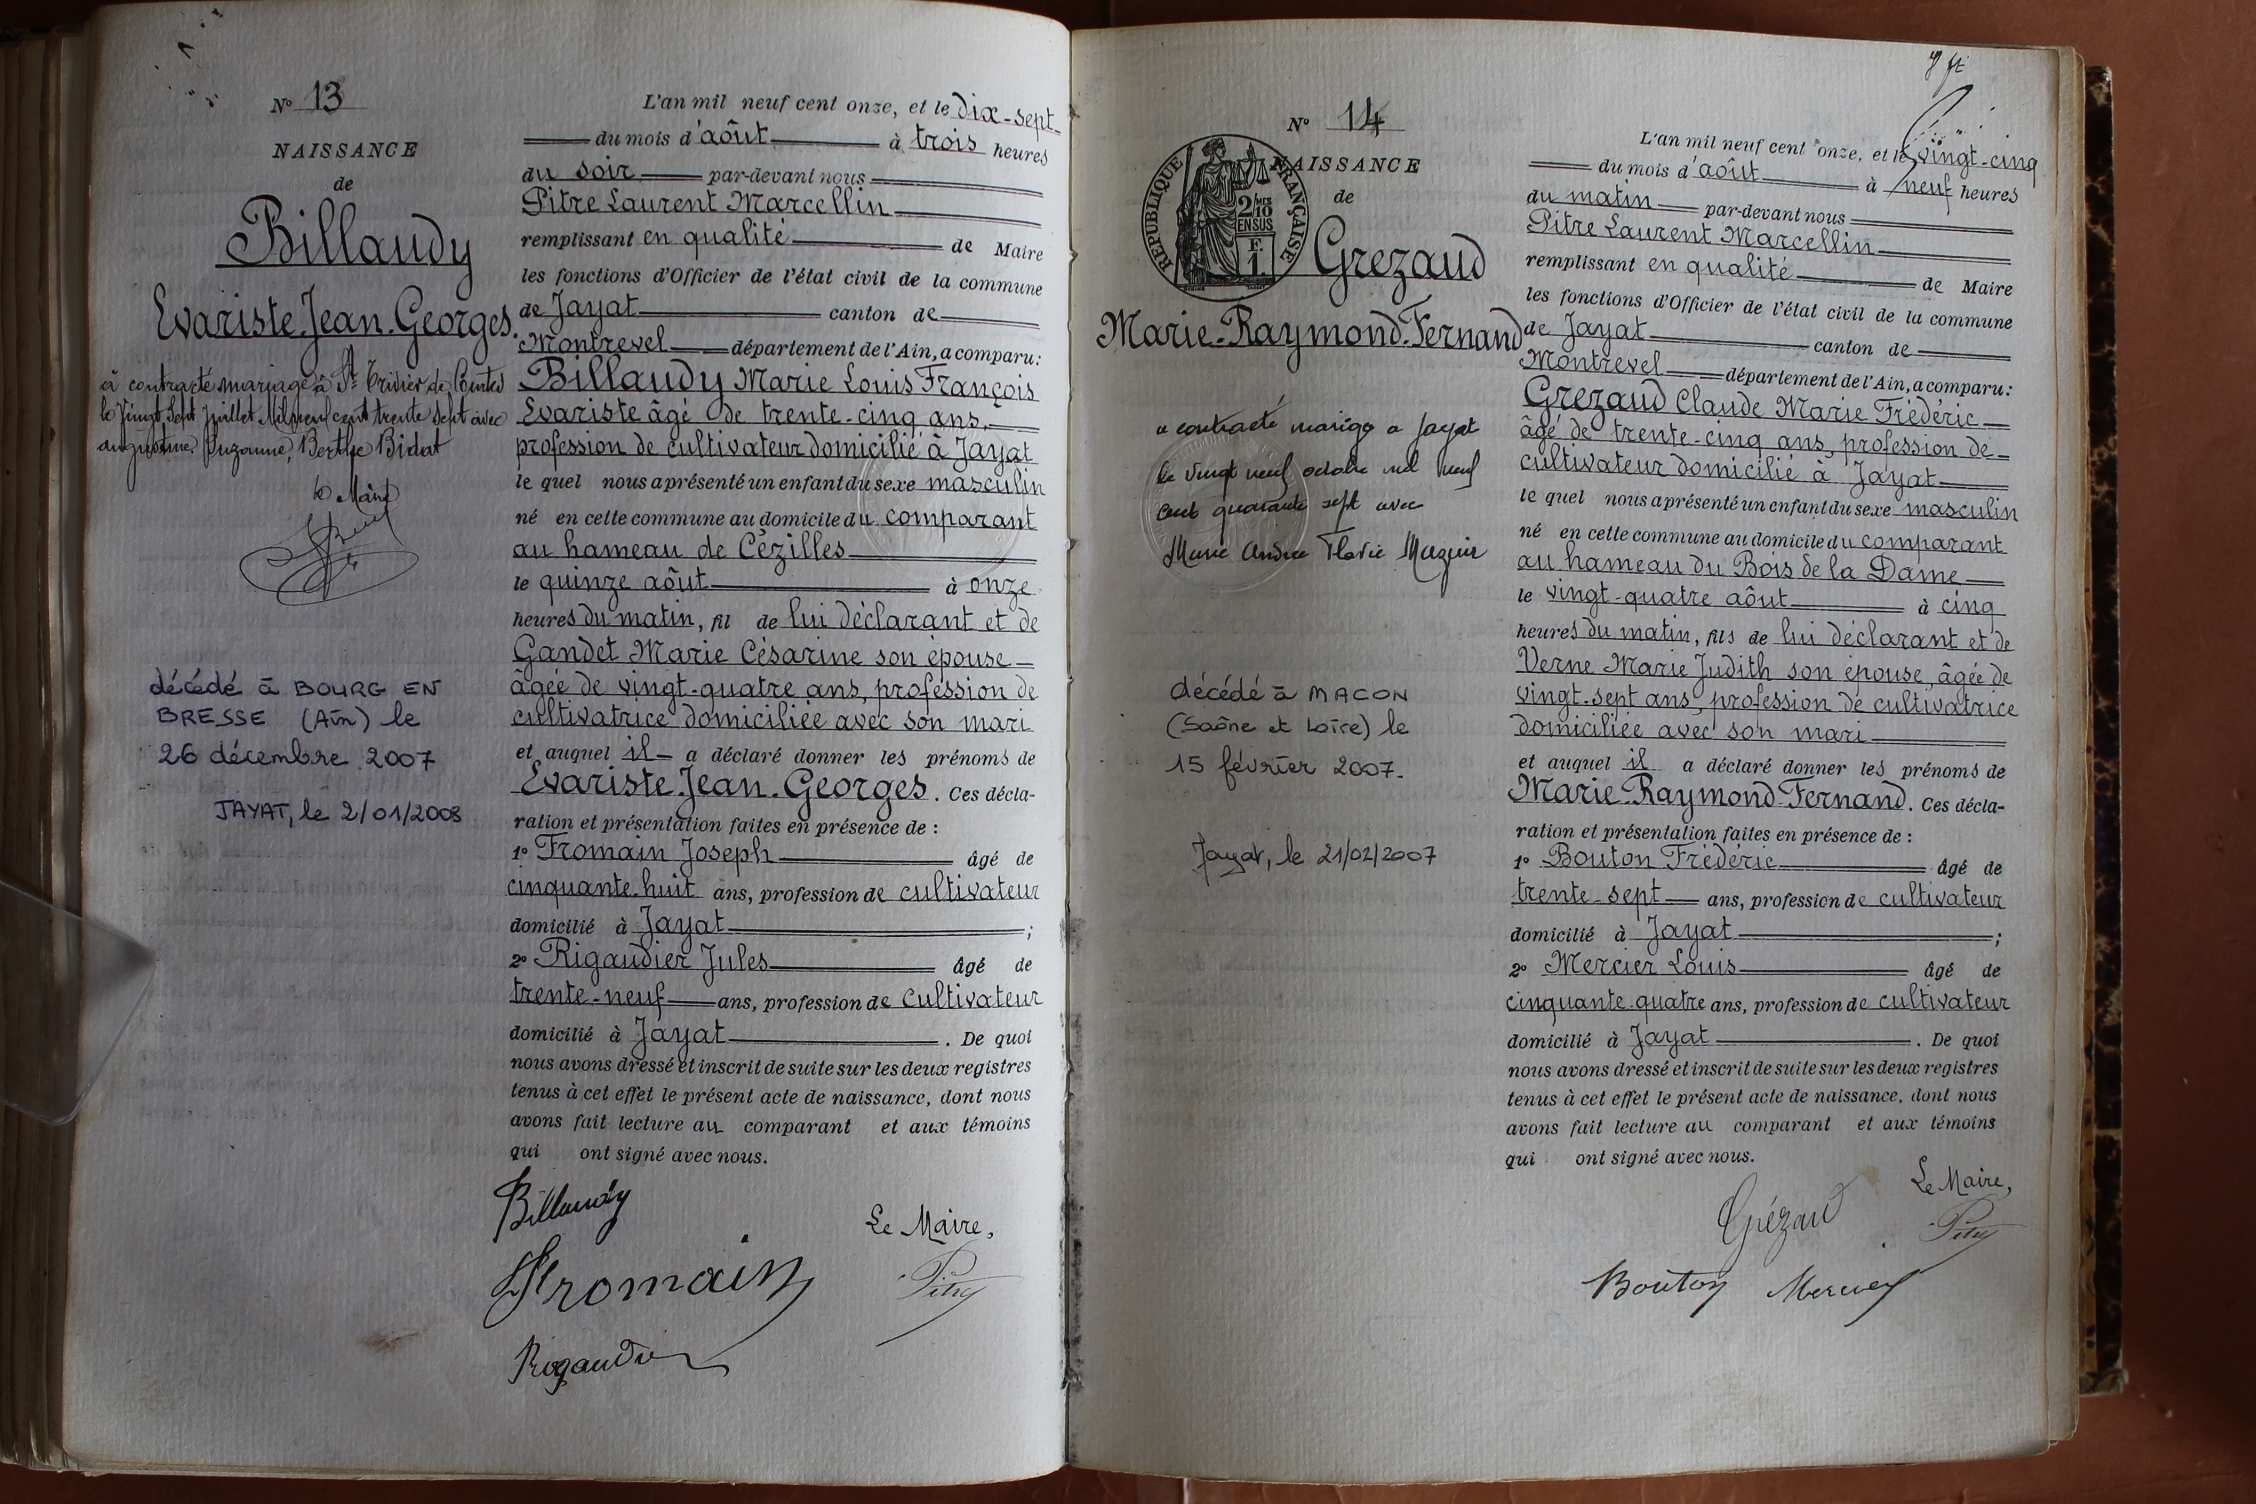 N° 13
NAISSANCE
de
Billaudy
Evariste Jean Georges.
à contracté mariage à St Trivier de Courtes
le Vingt Sept Juillet Mil neuf cent trente sept avec
Suzanne, Berthe Bidat
le Maire
décédé à BOURG EN
BRESSE (Ain) le
26 décembre 2007
JAYAT, le 2/01/2008
L'an mil neuf cent onze, et le dix-sept
du mois d'aôut à trois heures
du soir par-devant nous
Pitre Laurent Marcellin
remplissant en qualité de Maire
les fonctions d'Officier de l'état civil de la commune
de Jayat canton de
Montrevel département de l'Ain, a comparu:
Billaudy Marie Louis François
Evariste âgé de trente-cinq ans,
profession de cultivateur domicilié à Jayat
le quel nous a présenté un enfant du sexe masculin
né en cette commune au domicile du comparant
au hameau de Cézilles
le quinze aôut à onze
heures du matin, fil de lui déclarant et de
Gandet Marie Césarine son épouse
âgée de vingt-quatre ans, profession de
cultivatrice domiciliée avec son mari
et auquel il a déclaré donner les prénoms de
Evariste Jean Georges. Ces décla-
ration et présentation faites en présence de :
1° Fromain Joseph âgé de
cinquante-huit ans, profession de cultivateur
domicilié à Jayat ;
2° Rigaudier Jules âgé de
trente-neuf ans, profession de cultivateur
domicilié à Jayat . De quoi
nous avons dressé et inscrit de suite sur les deux registres
tenus à cet effet le présent acte de naissance, dont nous
avons fait lecture au comparant et aux témoins
qui ont signé avec nous.
Billaudy
Le Maire,
Fromain
Pitre
Rigaudier
N° 14
NAISSANCE
de
RÉPUBLIQUE FRANÇAISE
2/10
MES
EN SUS
F.
1.
Grezaud
Marie-Raymond-Fernand
a contracté mariage a Jayat
le vingt neuf octobre mil neuf
cent quarante sept avec
Marie Andrée Flavie Maguin
décédé à MACON
(Saône et Loire) le
15 février 2007.
Jayat, le 21/02/2007
L'an mil neuf cent onze, et le vingt-cinq
du mois d'aôut à neuf heures
du matin par-devant nous
Pitre Laurent Marcellin
remplissant en qualité de Maire
les fonctions d'Officier de l'état civil de la commune
de Jayat canton de
Montrevel département de l'Ain, a comparu:
Grezaud Claude Marie Frédéric
âgé de trente-cinq ans, profession de
cultivateur domicilié à Jayat
le quel nous a présenté un enfant du sexe masculin
né en cette commune au domicile du comparant
au hameau du Bois de la Dame
le vingt-quatre aôut à cinq
heures du matin, fils de lui déclarant et de
Verne Marie Judith son épouse, âgée de
vingt-sept ans, profession de cultivatrice
domiciliée avec son mari
et auquel il a déclaré donner les prénoms de
Marie-Raymond-Fernand. Ces décla-
ration et présentation faites en présence de :
1° Bouton Frédéric âgé de
trente-sept ans, profession de cultivateur
domicilié à Jayat ;
2° Mercier Louis âgé de
cinquante-quatre ans, profession de cultivateur
domicilié à Jayat . De quoi
nous avons dressé et inscrit de suite sur les deux registres
tenus à cet effet le présent acte de naissance, dont nous
avons fait lecture au comparant et aux témoins
qui ont signé avec nous.
Le Maire,
Grézaud
Pitre
Bouton Mercier